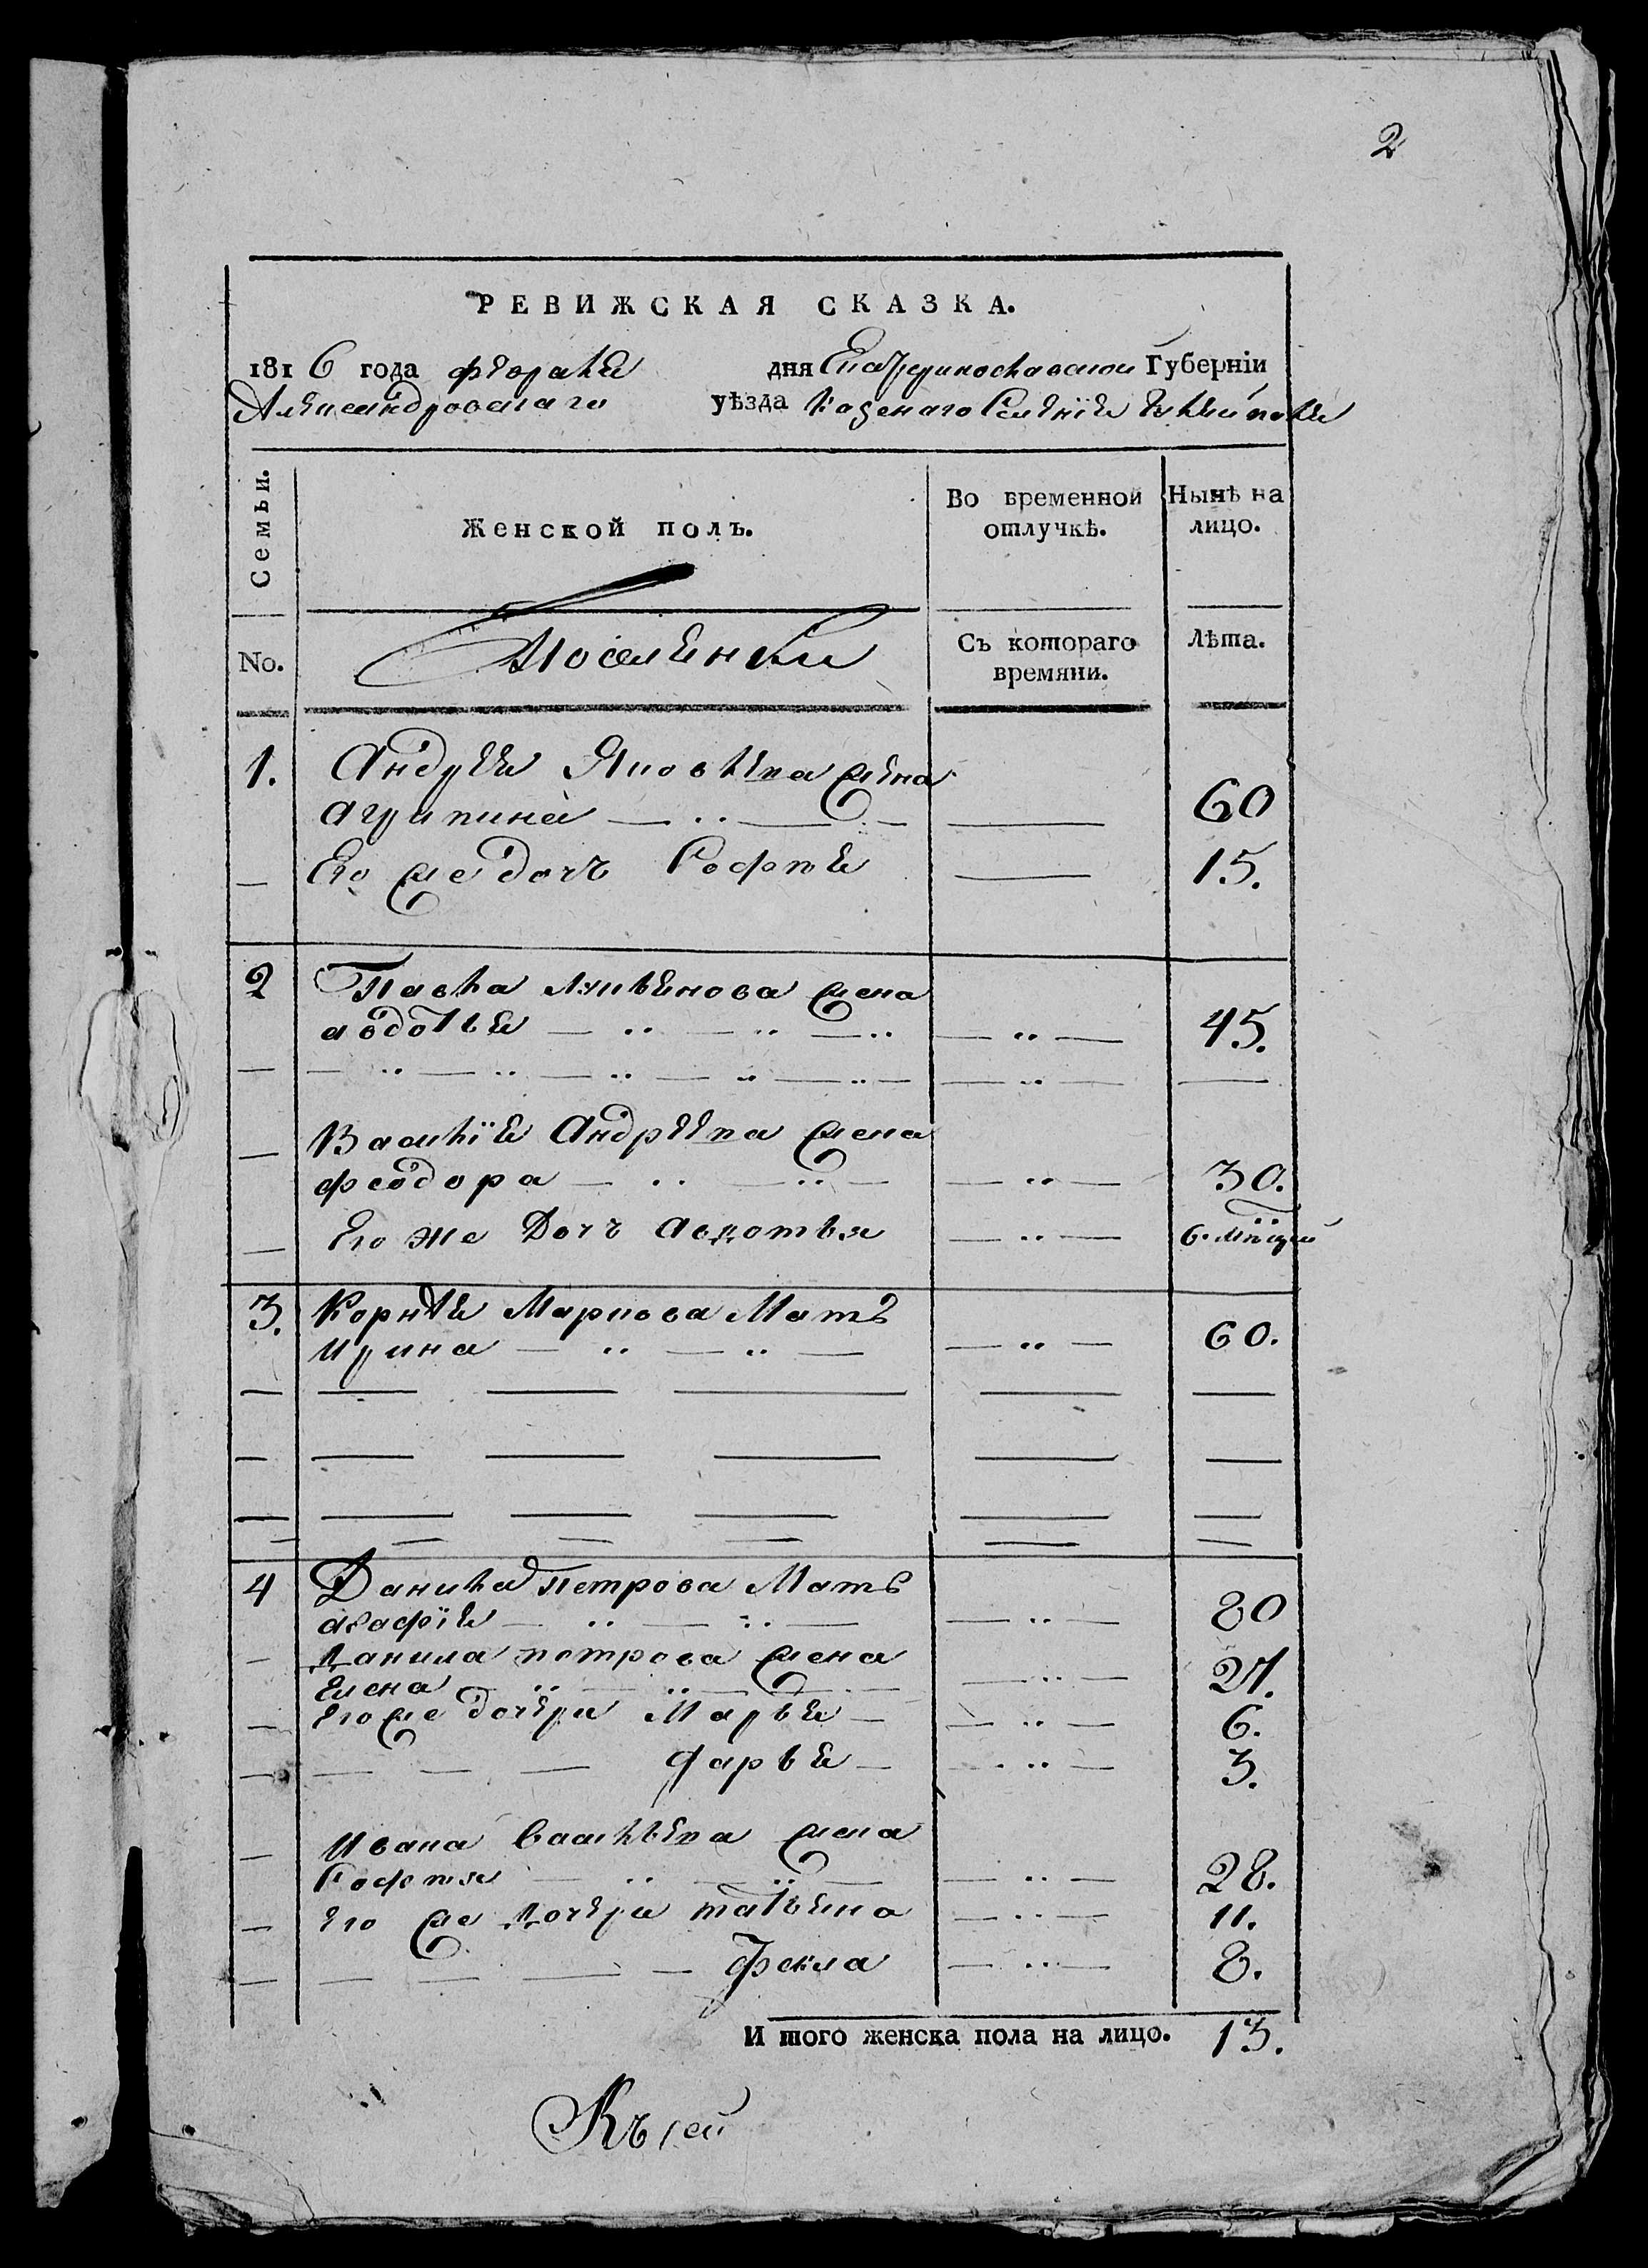 2
РЕВИЖСКАЯ СКАЗКА.
1816 года февраля дня Екатеринославской Губерніи
Александровскаго уѣзда казенаго Селенія
Семьи.
Женской полъ.
Во временной отлучкѣ.
Нынѣ на лицо.
No.
Поселянки
Съ котораго времяни.
Лѣта.
1. Андрея Яковлева жена
агрипина — .. — .. — — 60
— Его же дочь Софія — 15.
2 Павла Литвинова жена
авдотья — .. — .. — .. — .. — 45.
— — .. — .. — .. — .. — .. — — .. — —
— Василія Андреева жена
феодора — .. — .. — — .. — 30.
— Его же Дочь Авдотья — .. — 6. мѣсяцей
3. Корнѣя Маркова Мать
ирина — .. — .. — — .. — 60.
4 Данила петрова Мать
агафія — .. — .. — — .. — 80
— Данила петрова жена
Елена .. — .. — — — .. — 27.
— Его же дочери Марья — — .. — 6.
— — — — дарья — — .. — 3.
— Ивана васильева жена
Софія — .. — .. — — .. — 28.
— Его же дочери татьяна — .. — 11.
— — — — — Фекла — .. — 8.
И того женска пола на лицо. 13.
Къ сей